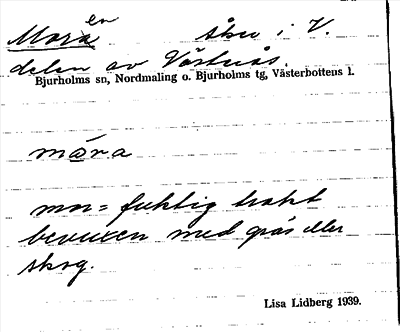 Moran åker i V.
delen av Västnäs.
Bjurholms sn, Nordmaling o. Bjurholms tg, Västerbottens l.
måra
mor= fuktig trakt
bevuxen med gräs eller
skog.
Lisa Lidberg 1939.